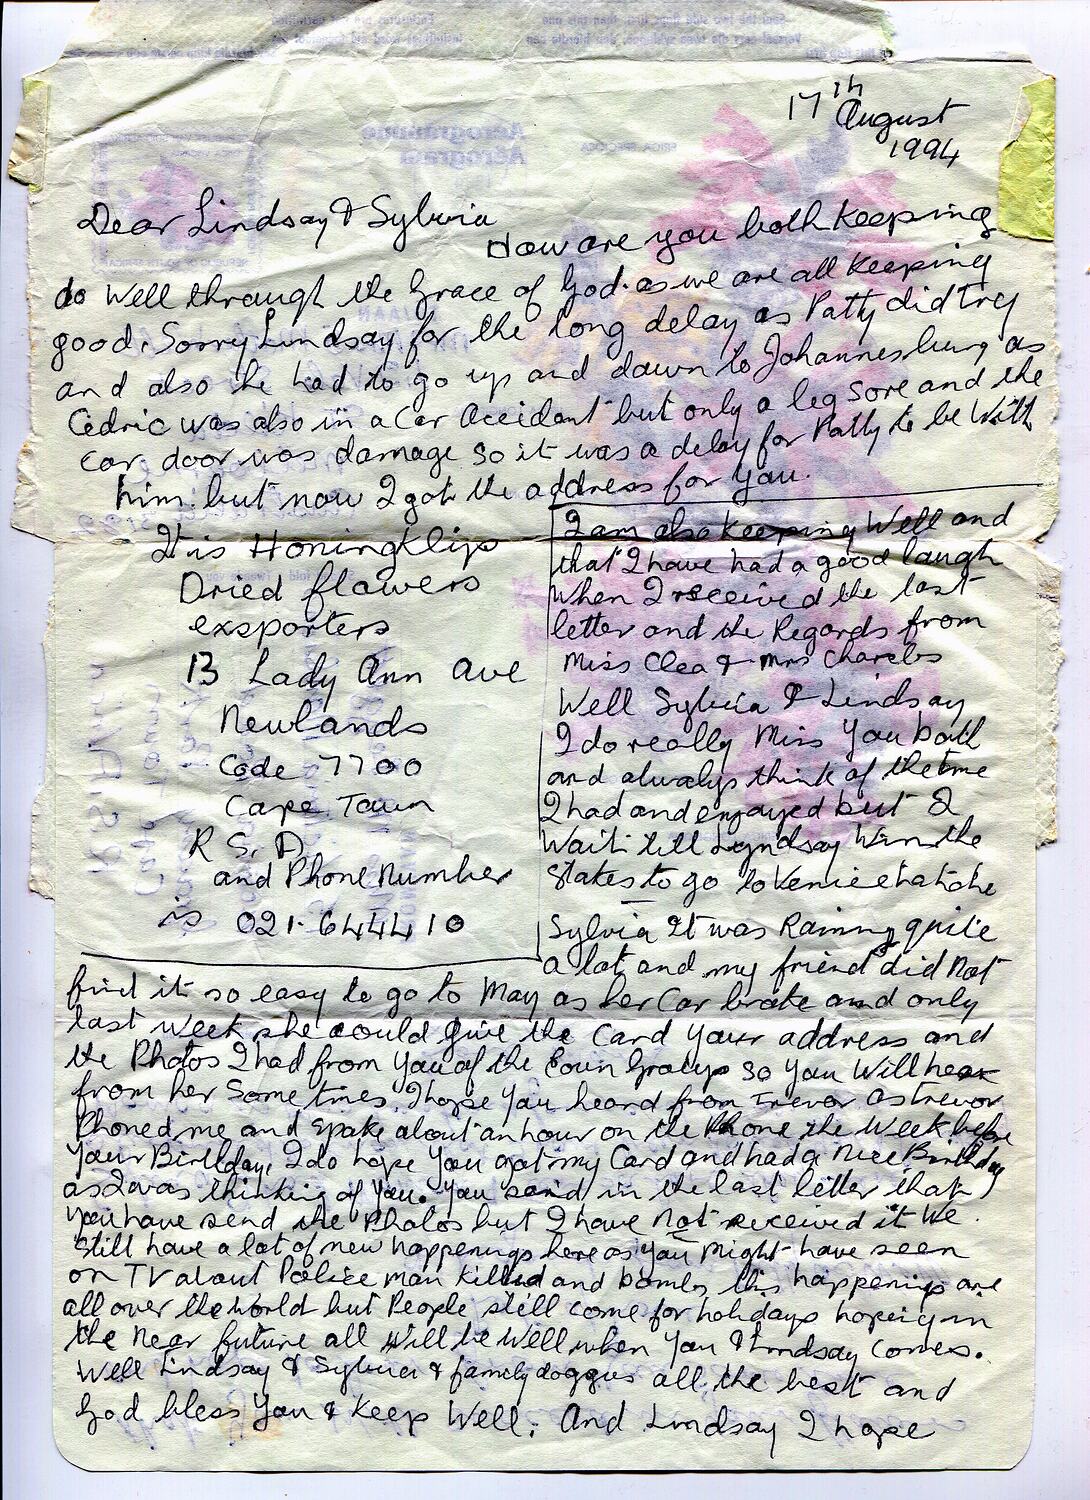 17th
August
1994
Dear Lindsay & Sylvia
How are you both keeping
do well through the Grace of God. as we are all keeping
good. Sorry Lindsay for the long delay as Patty did Try
and also he had to go up and down to Johannesburg as
Cedric was also in a Car Accident but only a leg sore and the
car door was damage so it was a delay for Patty to be With
him but now I got the address for you.
It is Honingklip
Dried flowers
exsporters
13 Lady Ann Ave
Newlands
Code 7700
Cape Town
R S. A
and Phone Number
is 021-6444 10
I am also keeping Well and
that I have had a good laugh
when I received the last
letter and the Regards from
Miss Clea & Mrs Charles
Well Sylvia & Lindsay
I do really Miss You both
and always think of the time
I had and enjoyed but I
Wait till Lyndsay Win the
Stakes to go to Venice
Sylvia It was Raining quite
a lot and my friend did Not
find it so easy to go to May as her Car brake and only
last week she could give the Card your address and
the Photos I had from You of the Group so you Will hear
from her Some times. I hope You heard from Trevor as Trevor
Phoned me and spake about an hour on the Phone the Week before
Your Birthday. I do hope You got my Card and had a Nice Birthday
as I was thinking of You. You said in the last letter that
You have send the Photos but I have Not received it We
still have a lot of new happenings here as You Might have seen
on TV about Police man killed and bombs this happenings are
all over the world but People still come for holidays hoping in
the Near future all Will be Well when You & Lindsay comes.
Well Lindsay & Sylvia & family doggies all the best and
God bless You & Keep Well. And Lindsay I hope